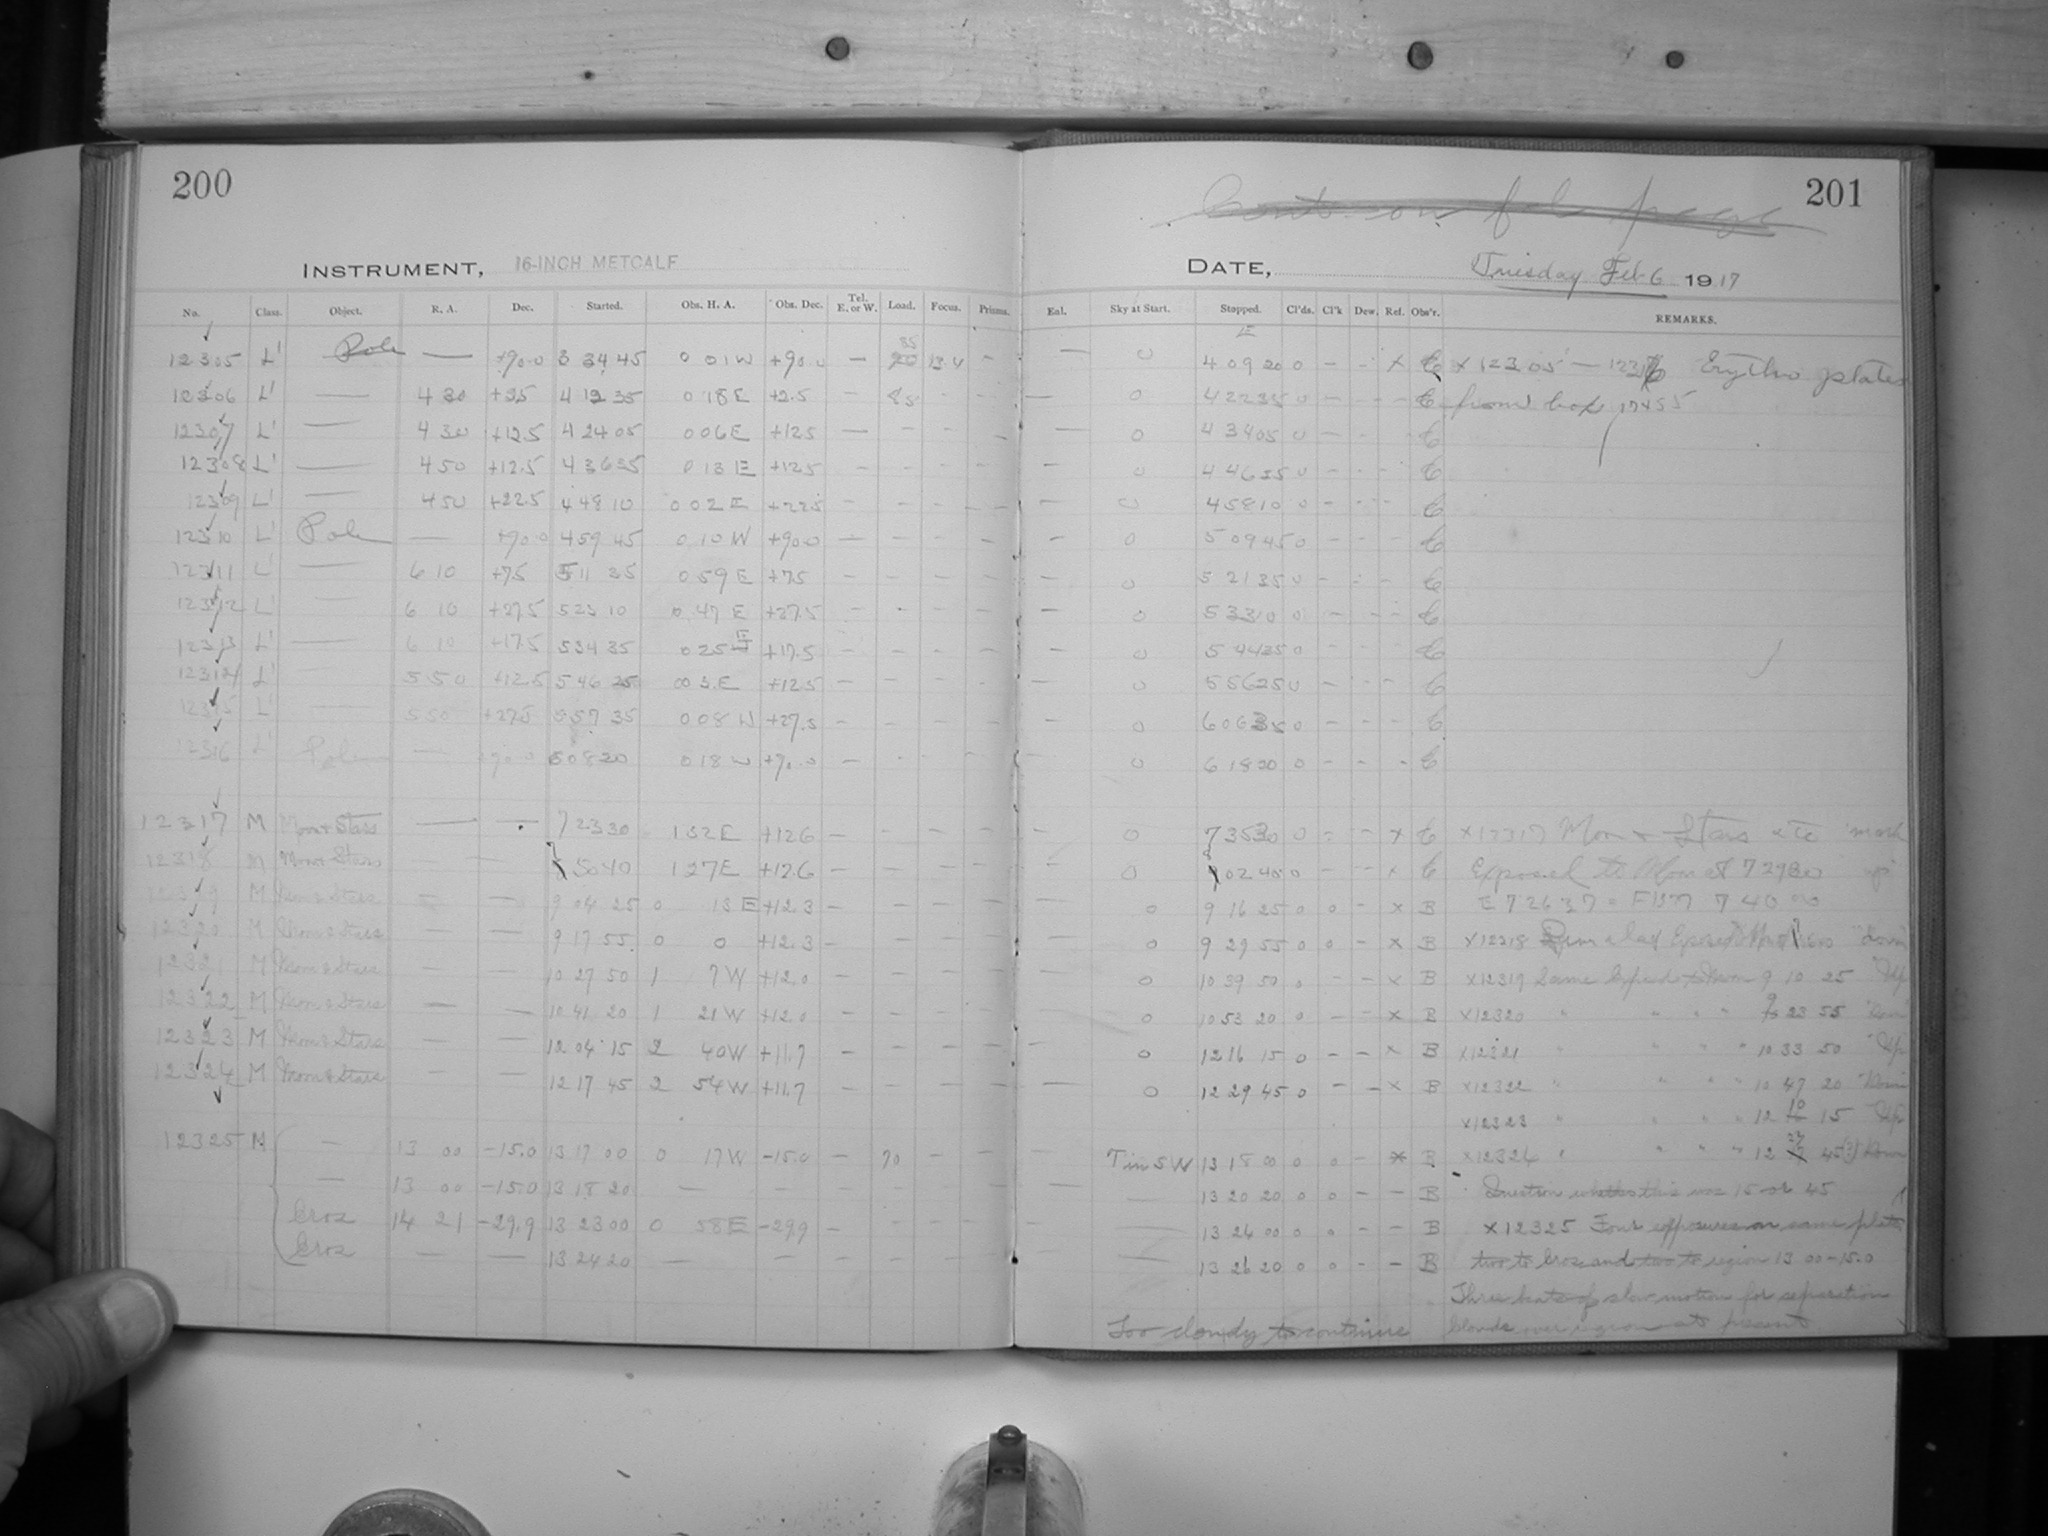 200
INSTRUMENT, 16-INCH METCALF
No. Class. Object. R. A. Dec. Started. Obs. H. A. Obs. Dec. Tel. E. or W. Load. Focus. Prisms.
12305 L' Pole — +90.0 3 34 45 0 01 W +90.0 — 13.4 -
12306 L' — 4 30 +2.5 4 12 35 0 18 E +2.5 — 85
12307 L' — 4 30 +12.5 4 24 05 0 06 E +12.5 —
12308 L' — 4 50 +12.5 4 36 35 0 13 E +12.5 —
12309 L' — 4 50 +22.5 4 48 10 0 02 E +22.5 —
12310 L' Pole — +90.0 4 59 45 0 10 W +90.0 —
12311 L' — 6 10 +7.5 5 11 35 0 59 E +7.5 —
12312 L' — 6 10 +27.5 5 23 10 0 47 E +27.5 —
12313 L' — 6 10 +17.5 5 34 35 0 25 E +17.5 —
12314 L' 5 50 +12.5 5 46 25 00 3 E +12.5 —
12315 L' — 5 50 +27.5 5 57 35 0 08 W +27.5 —
12316 L' Pole — +90.0 6 08 20 0 18 W +90.0 —
12317 M Moon & Stars — — 7 23 30 1 32 E +12.6 —
12318 M Moon & Stars — — 50 40 1 27 E +12.6 —
12319 M Moon & Stars — — 9 04 25 0 13 E +12.3 —
12320 M Moon & Stars — — 9 17 55 0 0 +12.3 —
12321 M Moon & Stars — — 10 27 50 1 7 W +12.0 —
12322 M Moon & Stars — — 10 41 20 1 21 W +12.0 —
12323 M Moon & Stars — — 12 04 15 2 40 W +11.7 —
12324 M Moon & Stars — — 12 17 45 2 54 W +11.7 —
12325 M — 13 00 -15.0 13 17 00 0 17 W -15.0 — 70
— 13 00 -15.0 13 18 20 —
Eros 14 21 -29.9 13 23 00 0 58 E -29.9 —
Eros — — 13 24 20 —
201
DATE, Tuesday Feb. 6 1917
Eal. Sky at Start. Stopped. Cl'ds. Cl'k Dew. Ref. Obs'r. REMARKS.
0 4 09 20 0 - - x C x 12305 — 12316 Erythro plates
0 4 22 35 0 - - - C from box
0 4 34 05 0 - C
0 4 46 35 0 - - - C
0 4 58 10 0 - - - C
0 5 09 45 0 - - - C
0 5 21 35 0 - - - C
0 5 33 10 0 - - - C
0 5 44 35 0 - - - C
0 5 56 25 0 - - - C
0 6 0 35 0 - - - C
0 6 18 20 0 - - - C
0 7 35 30 0 - - x C x12317 Moon & Stars
0 02 40 0 - - x C Exposed to Moon at 7 29 30
0 9 16 25 0 0 - x B
0 9 29 55 0 0 - x B x12318 Exposed "down"
0 10 39 50 0 - - x B x12319 Same Exposed to Moon 9 10 25 "Up
0 10 53 20 0 - - x B x12320 " " " " 9 23 55 "Down
0 12 16 15 0 - - x B x12321 " " " " 10 33 50 "Up
0 12 29 45 0 - - x B x12322 " " " " 10 47 20 "Down
x12323 " " " " 12 10 15 "Up
T in SW 13 18 00 0 0 - x B x12324 " " " " 12 45 Down
— 13 20 20 0 0 - - B Question whether this was 15 or 45
— 13 24 00 0 0 - - B x12325 Four exposures on same plate
— 13 26 20 0 0 - - B two to Eros and two to region 13 00 -15.0
Three beats of slow motion for separation
Too cloudy to continue Clouds over region at present